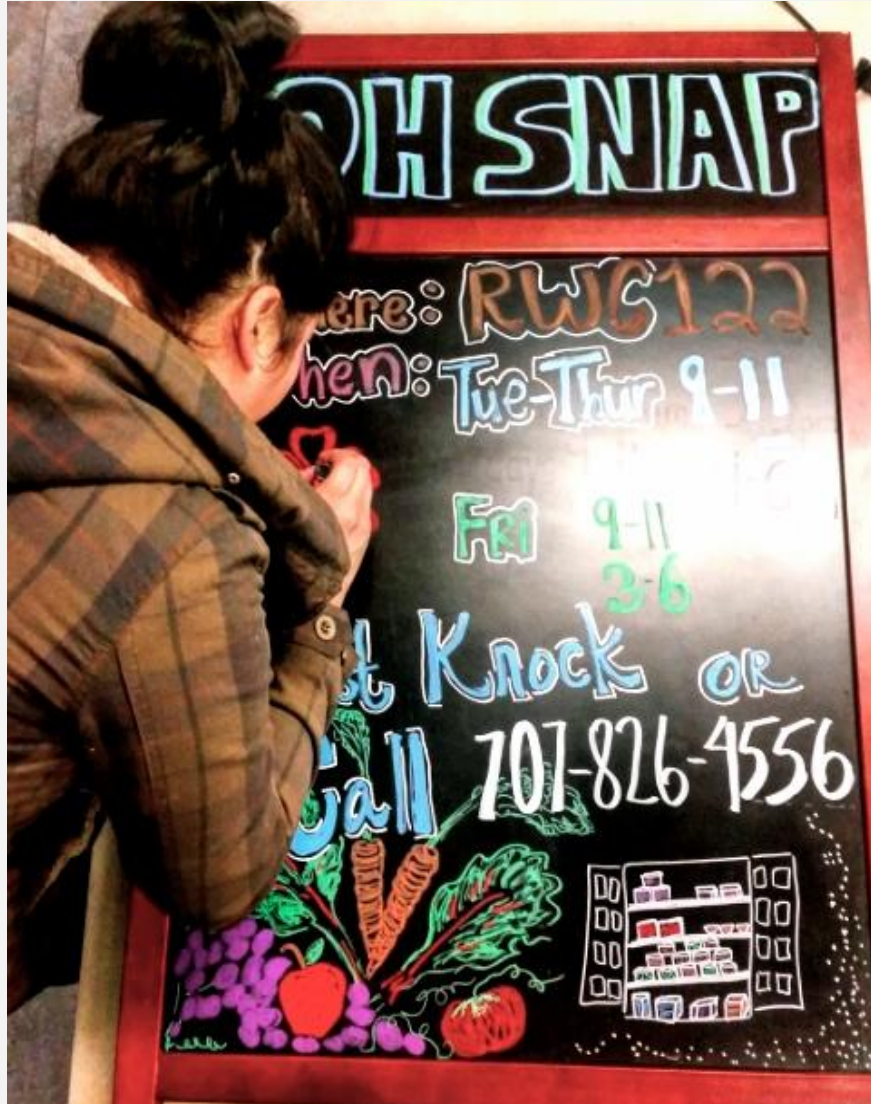 OH SNAP
here: RWC 122
hen: Tue-Thur 9-11
Fri 9-11
3-6
st Knock OR
Call 707-826-4556